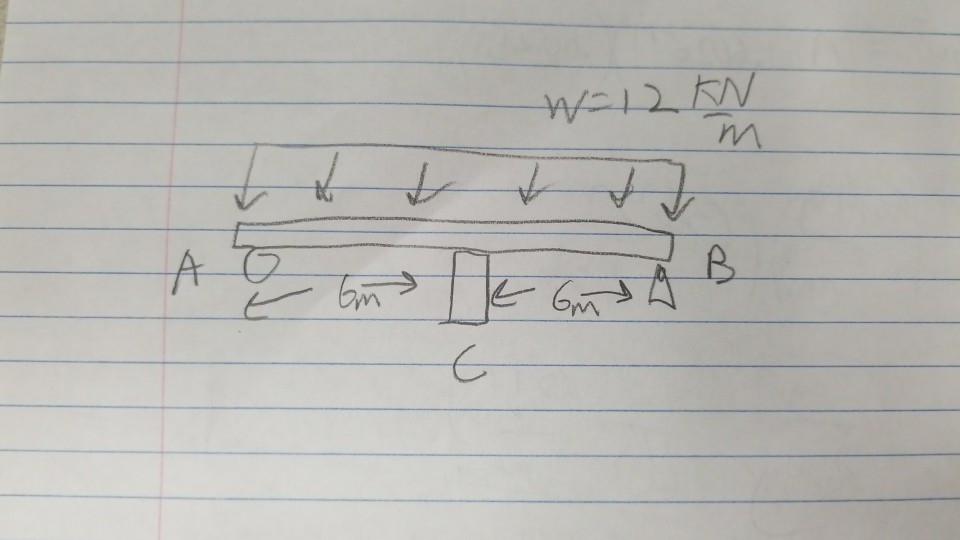 W=12 KN/m
A B
6m 6m
C